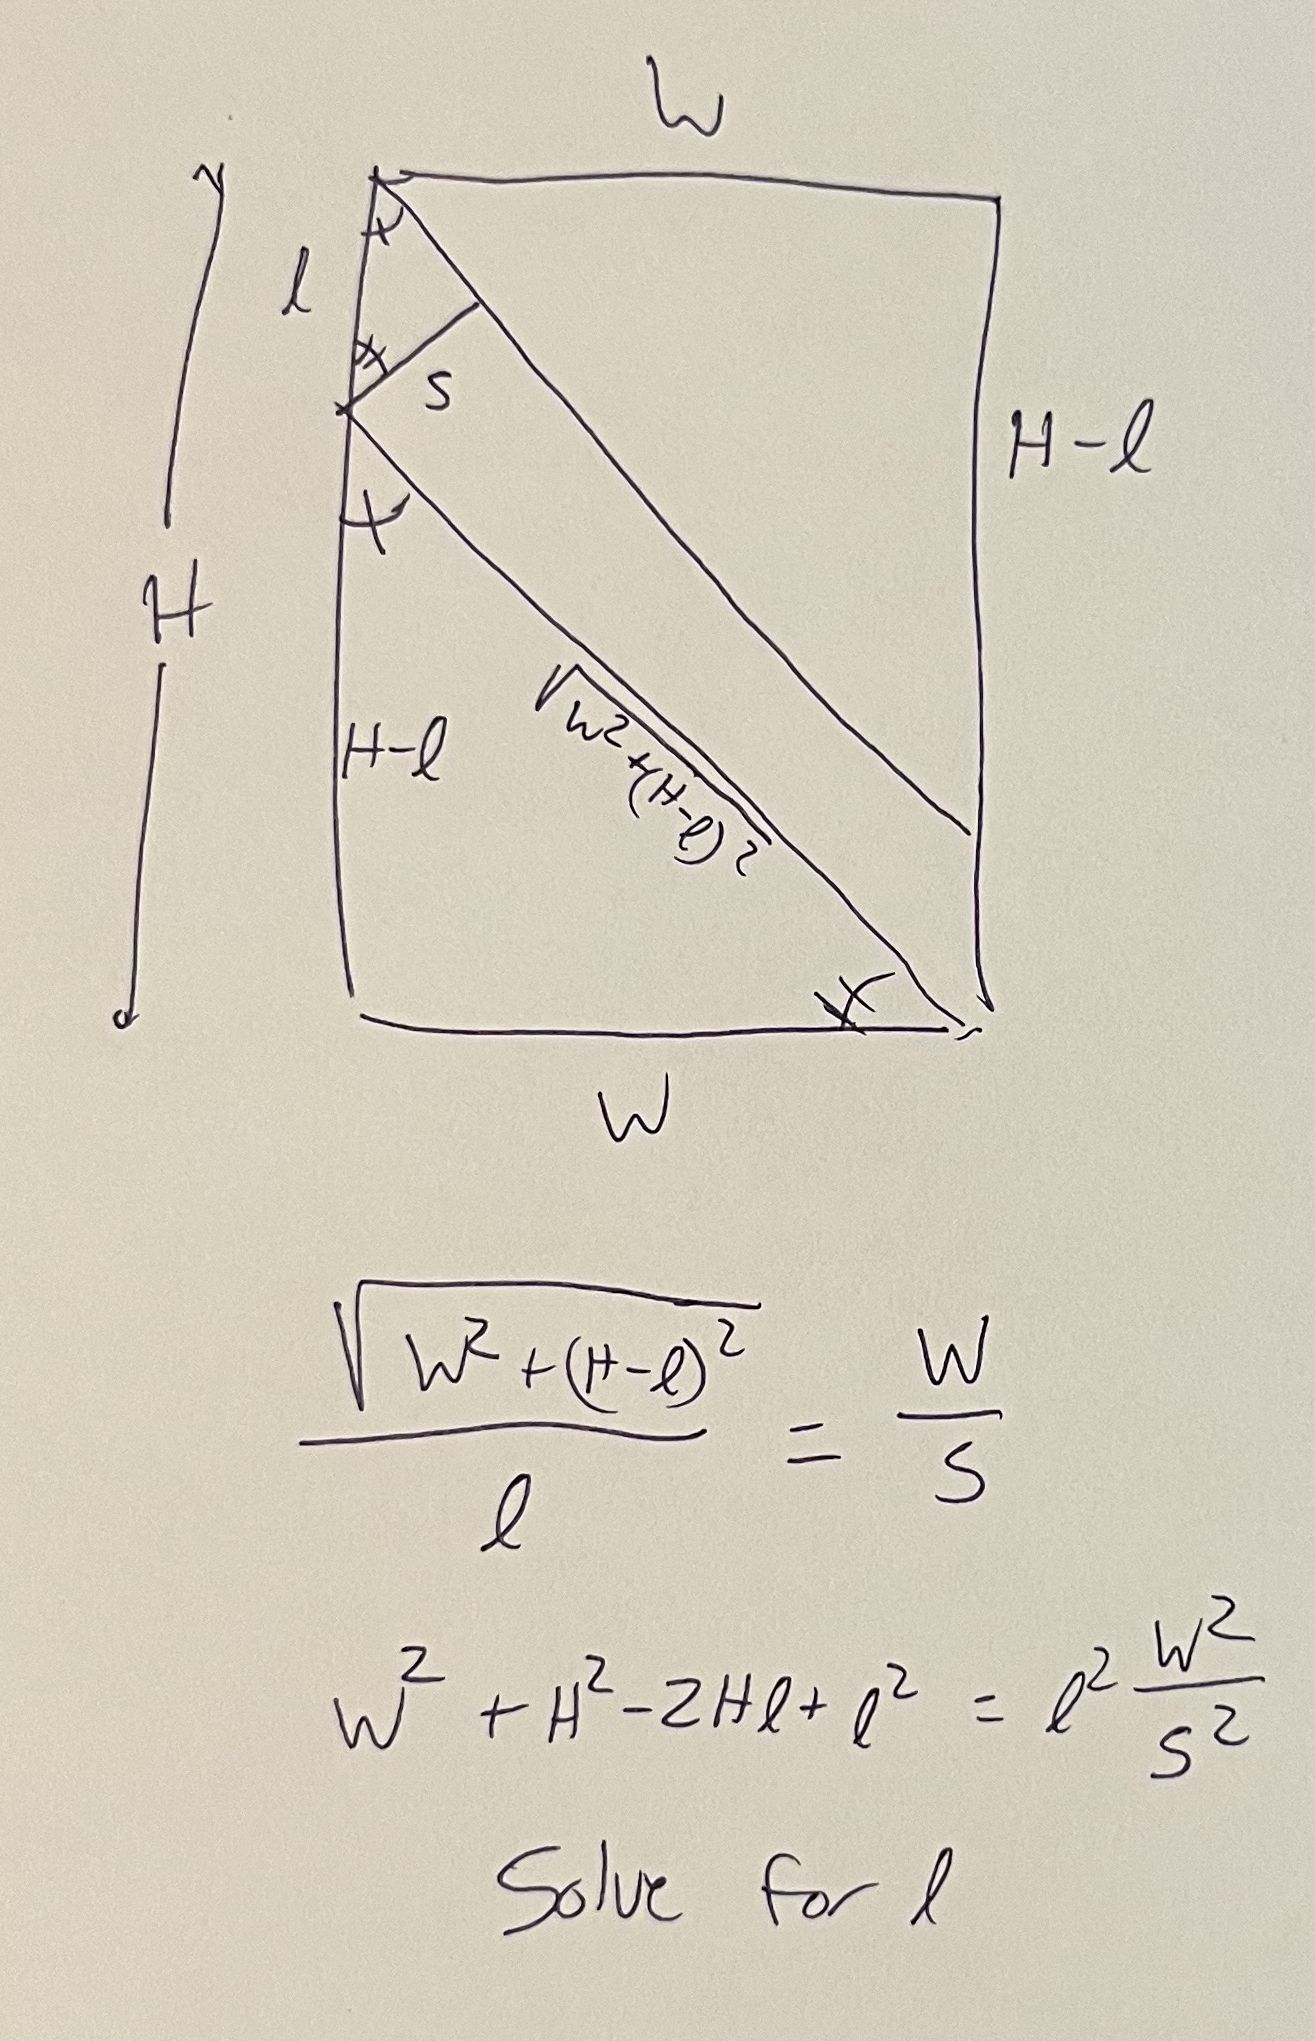 W
l
s
H-l
H
H-l
√W²+(H-l)²
W
√W²+(H-l)² / l = W / s
W² + H² - 2Hl + l² = l² W² / s²
Solve for l